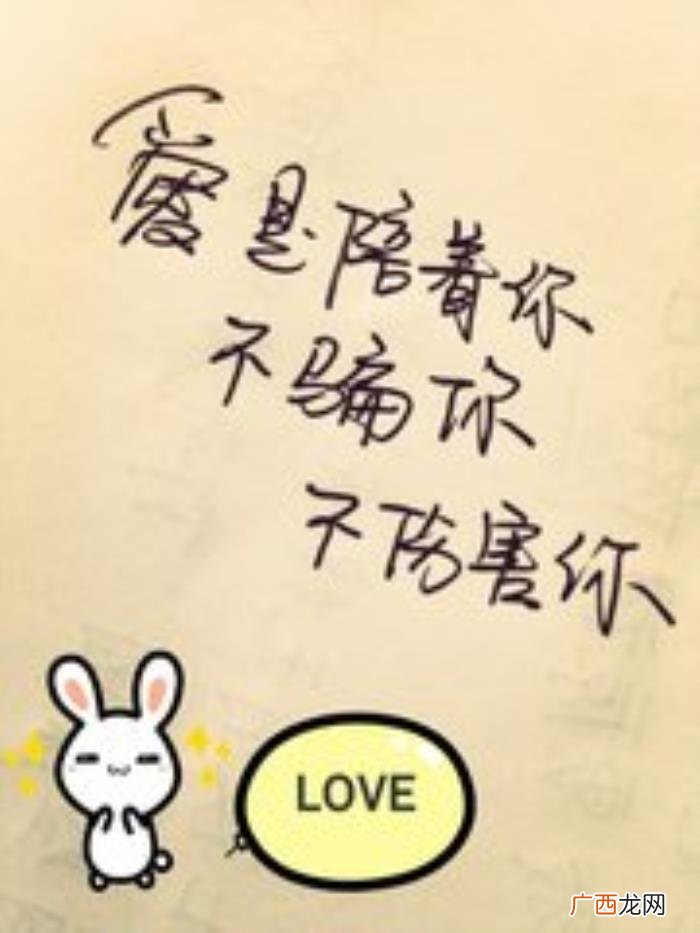 爱是陪着你
不骗你
不伤害你
LOVE
广西龙网